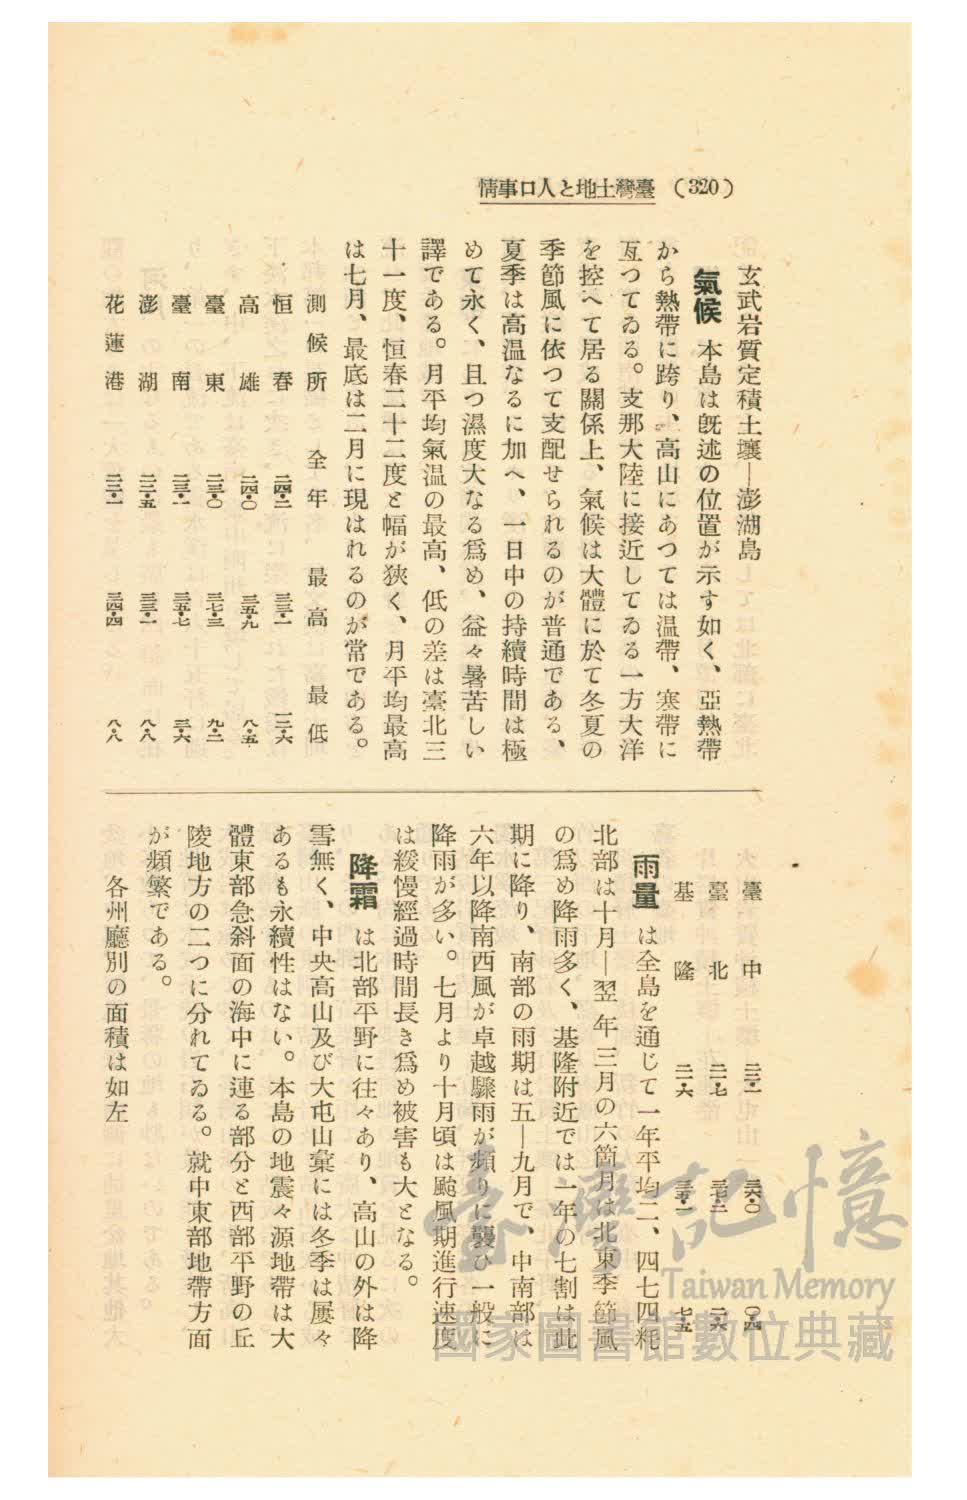 臺灣土地と人口事情 (320)
玄武岩質定積土壤―澎湖島
氣候 本島は旣述の位置が示す如く、亞熱帶
から熱帶に跨り、高山にあつては温帶、寒帶に
亙つてゐる。支那大陸に接近してゐる一方大洋
を控へて居る關係上、氣候は大體に於て冬夏の
季節風に依つて支配せられるのが普通である、
夏季は高温なるに加へ、一日中の持續時間は極
めて永く、且つ濕度大なる爲め、益々暑苦しい
譯である。月平均氣温の最高、低の差は臺北三
十一度、恒春二十二度と幅が狹く、月平均最高
は七月、最底は二月に現はれるのが常である。
測候所 全年 最高 最低
恒春 二四・二 三三・一 一二・六
高雄 二四・〇 三五・九 八・五
臺東 二三・〇 三七・三 九・二
臺南 二三・一 三五・七 三・六
澎湖 二二・五 三三・一 八・八
花蓮港 二三・一 三四・四 八・八
臺中 二二・一 三六・〇 〇・四
臺北 二一・七 三七・二 二・六
基隆 二一・六 三六・一 七・五
雨量 は全島を通じて一年平均二、四七四粍
北部は十月―翌年三月の六箇月は北東季節風
の爲め降雨多く、基隆附近では一年の七割は此
期に降り、南部の雨期は五―九月で、中南部は
六年以降南西風が卓越驟雨が頻りに襲ひ一般に
降雨が多い。七月より十月頃は颱風期進行速度
は緩慢經過時間長き爲め被害も大となる。
降霜 は北部平野に往々あり、高山の外は降
雪無く、中央高山及び大屯山彙には冬季は屢々
あるも永續性はない。本島の地震々源地帶は大
體東部急斜面の海中に連る部分と西部平野の丘
陵地方の二つに分れてゐる。就中東部地帶方面
が頻繁である。
各州廳別の面積は如左
臺灣記憶
Taiwan Memory
國家圖書館數位典藏